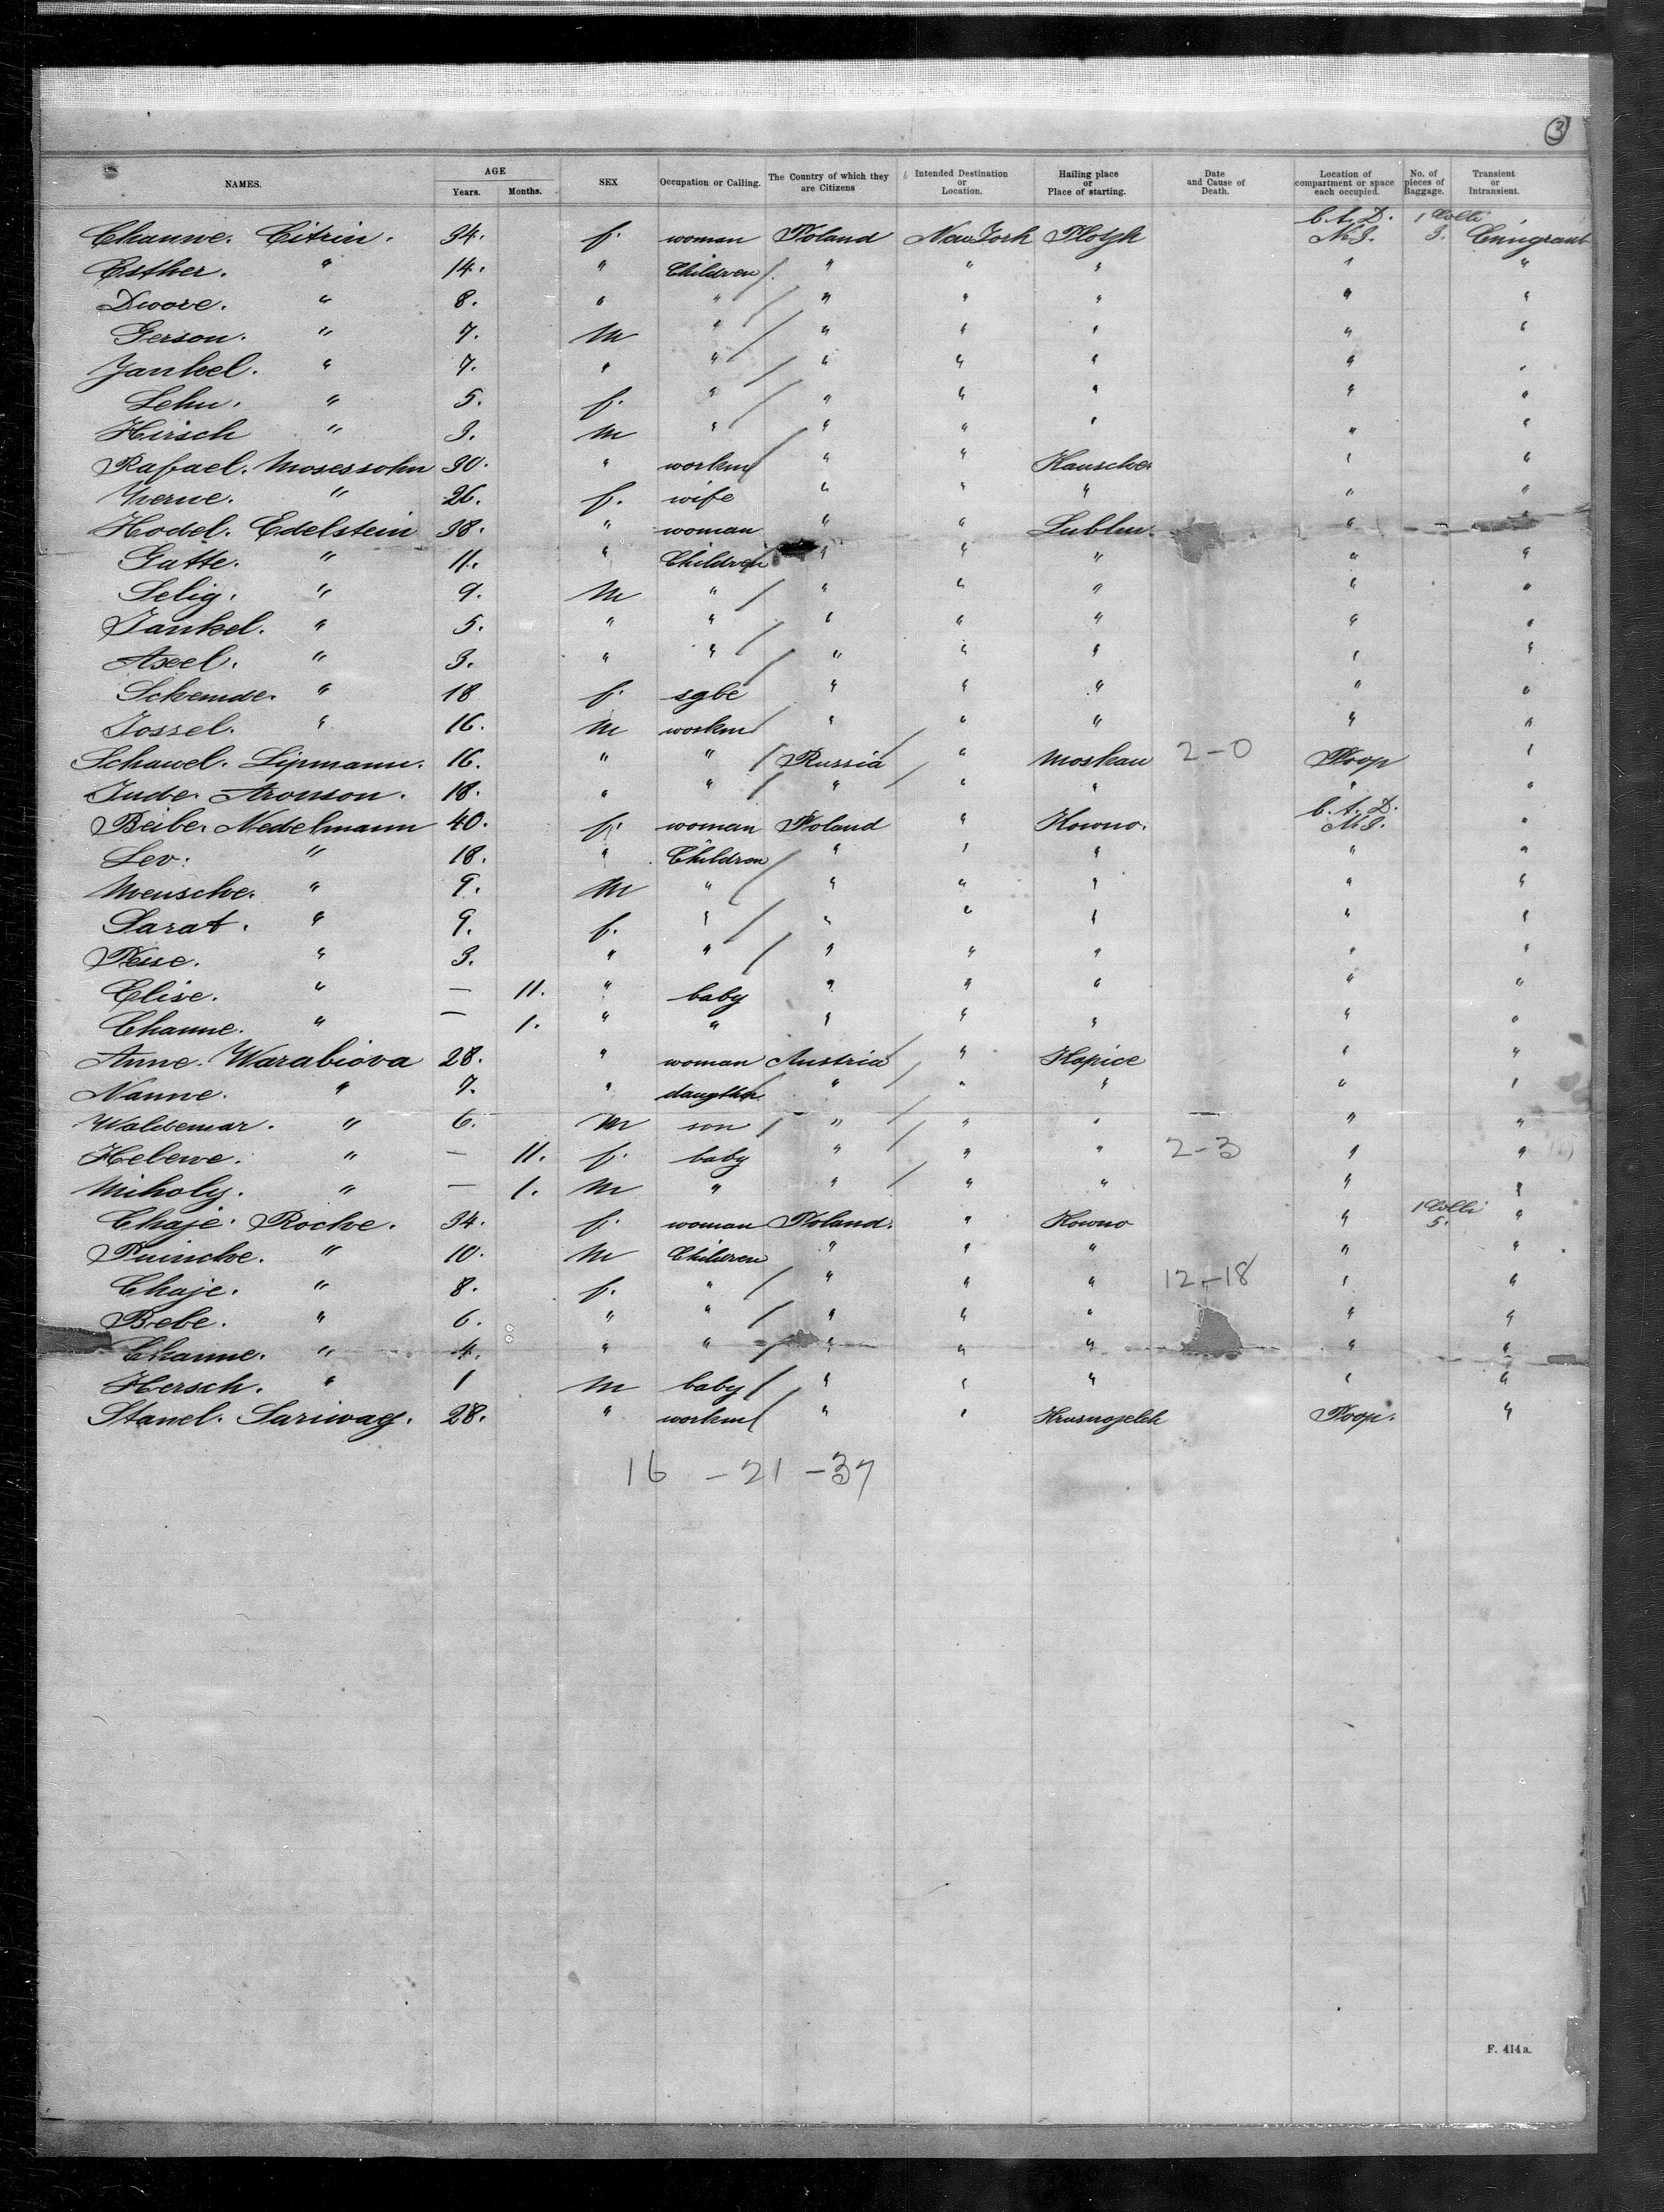 3
NAMES. AGE Years. Months. SEX Occupation or Calling. The Country of which they are Citizens Intended Destination or Location. Hailing place or Place of starting. Date and Cause of Death. Location of compartment or space each occupied. No. of pieces of Baggage. Transient or Intransient.
Channe. Citrin. 34. f. woman Poland New York Plotzk C. A. D. 1 Colli 3. Emigrant
Esther. " 14. " Children " " " " "
Dwore. " 8. " " " " " " "
Gerson. " 7. M " " " " " "
Jankel. " 7. " " " " " " "
Lehn. " 5. f. " " " " " "
Hirsch " 3. M " " " " " "
Rafael. Mosessohn 30. " workm " " Kausche. " "
" 26. f. wife " " " " "
Hodel. Edelstein 38. " woman " " Lublin. " "
Gutte. " 11. " Children " " " " "
Selig. " 9. M " " " " " "
Jankel. " 5. " " " " " " "
Axel. " 3. " " " " " " "
Scheinde. " 18 f. sgle " " " " "
Jossel. " 16. M workm " " " " "
Schawel. Lipmann. 16. " " Russia " Moskau 2-0 Poop "
Jude. Aronson. 18. " " " " " " "
Beile. Nedelmann 40. f. woman Poland " Kowno. C. A. D. "
Lev. " 18. " Children " " " " "
Mensche. " 9. M " " " " " "
Sarat. " 9. f. " " " " " "
Pesse. " 3. " " " " " " "
Elise. " — 11. " baby " " " " "
Channe. " — 1. " " " " " " "
Anne. Warabiova 28. " woman Austria " Kopice " "
Nanne. " 7. " daugther " " " " "
Waldemar. " 6. M son " " " " "
Helene. " — 11. f. baby " " " 2-3 " "
Miholy. " — 1. M " " " " " "
Chaje. Roche. 34. f. woman Poland. " Kowno " 1 Colli 5. "
Puinche. " 10. M Children " " " " "
Chaje. " 8. f. " " " " 12-18 " "
Bebe. " 6. " " " " " " "
Channe. " 4. " " " " " " "
Hersch. " 1 M baby " " " " "
Stanel. Sariwag. 28. " workm " " Poop. "
16 - 21 - 37
F. 414a.